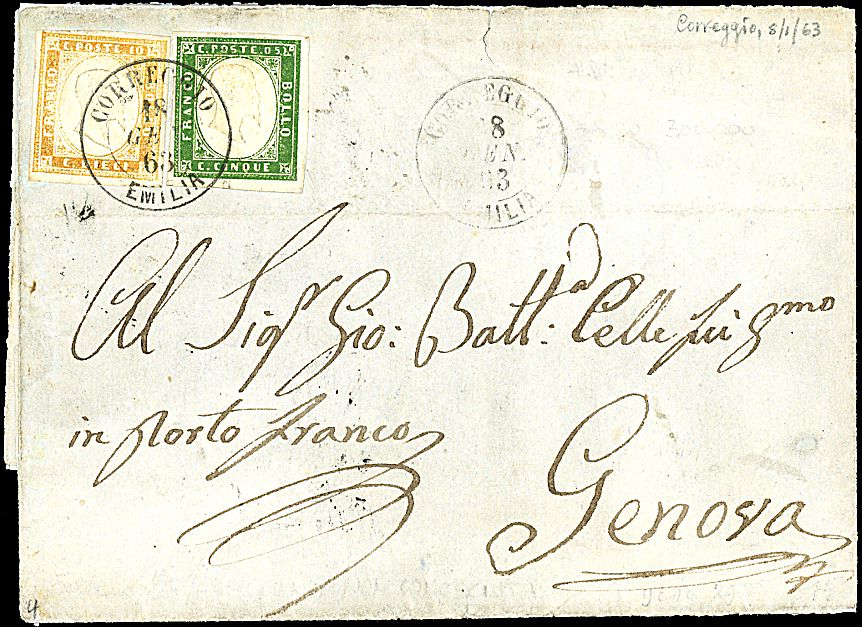 Correggio, 8/1/63
C. POSTE. 10
FRANCO
C. DIECI
C. POSTE. 05
FRANCO
BOLLO
C. CINQUE
CORREGGIO
18
GEN
63
EMILIA
CORREGGIO
8
GEN
63
EMILIA
Al Sigr Gio: Batta: Celle
in Porto franco
Genova
4